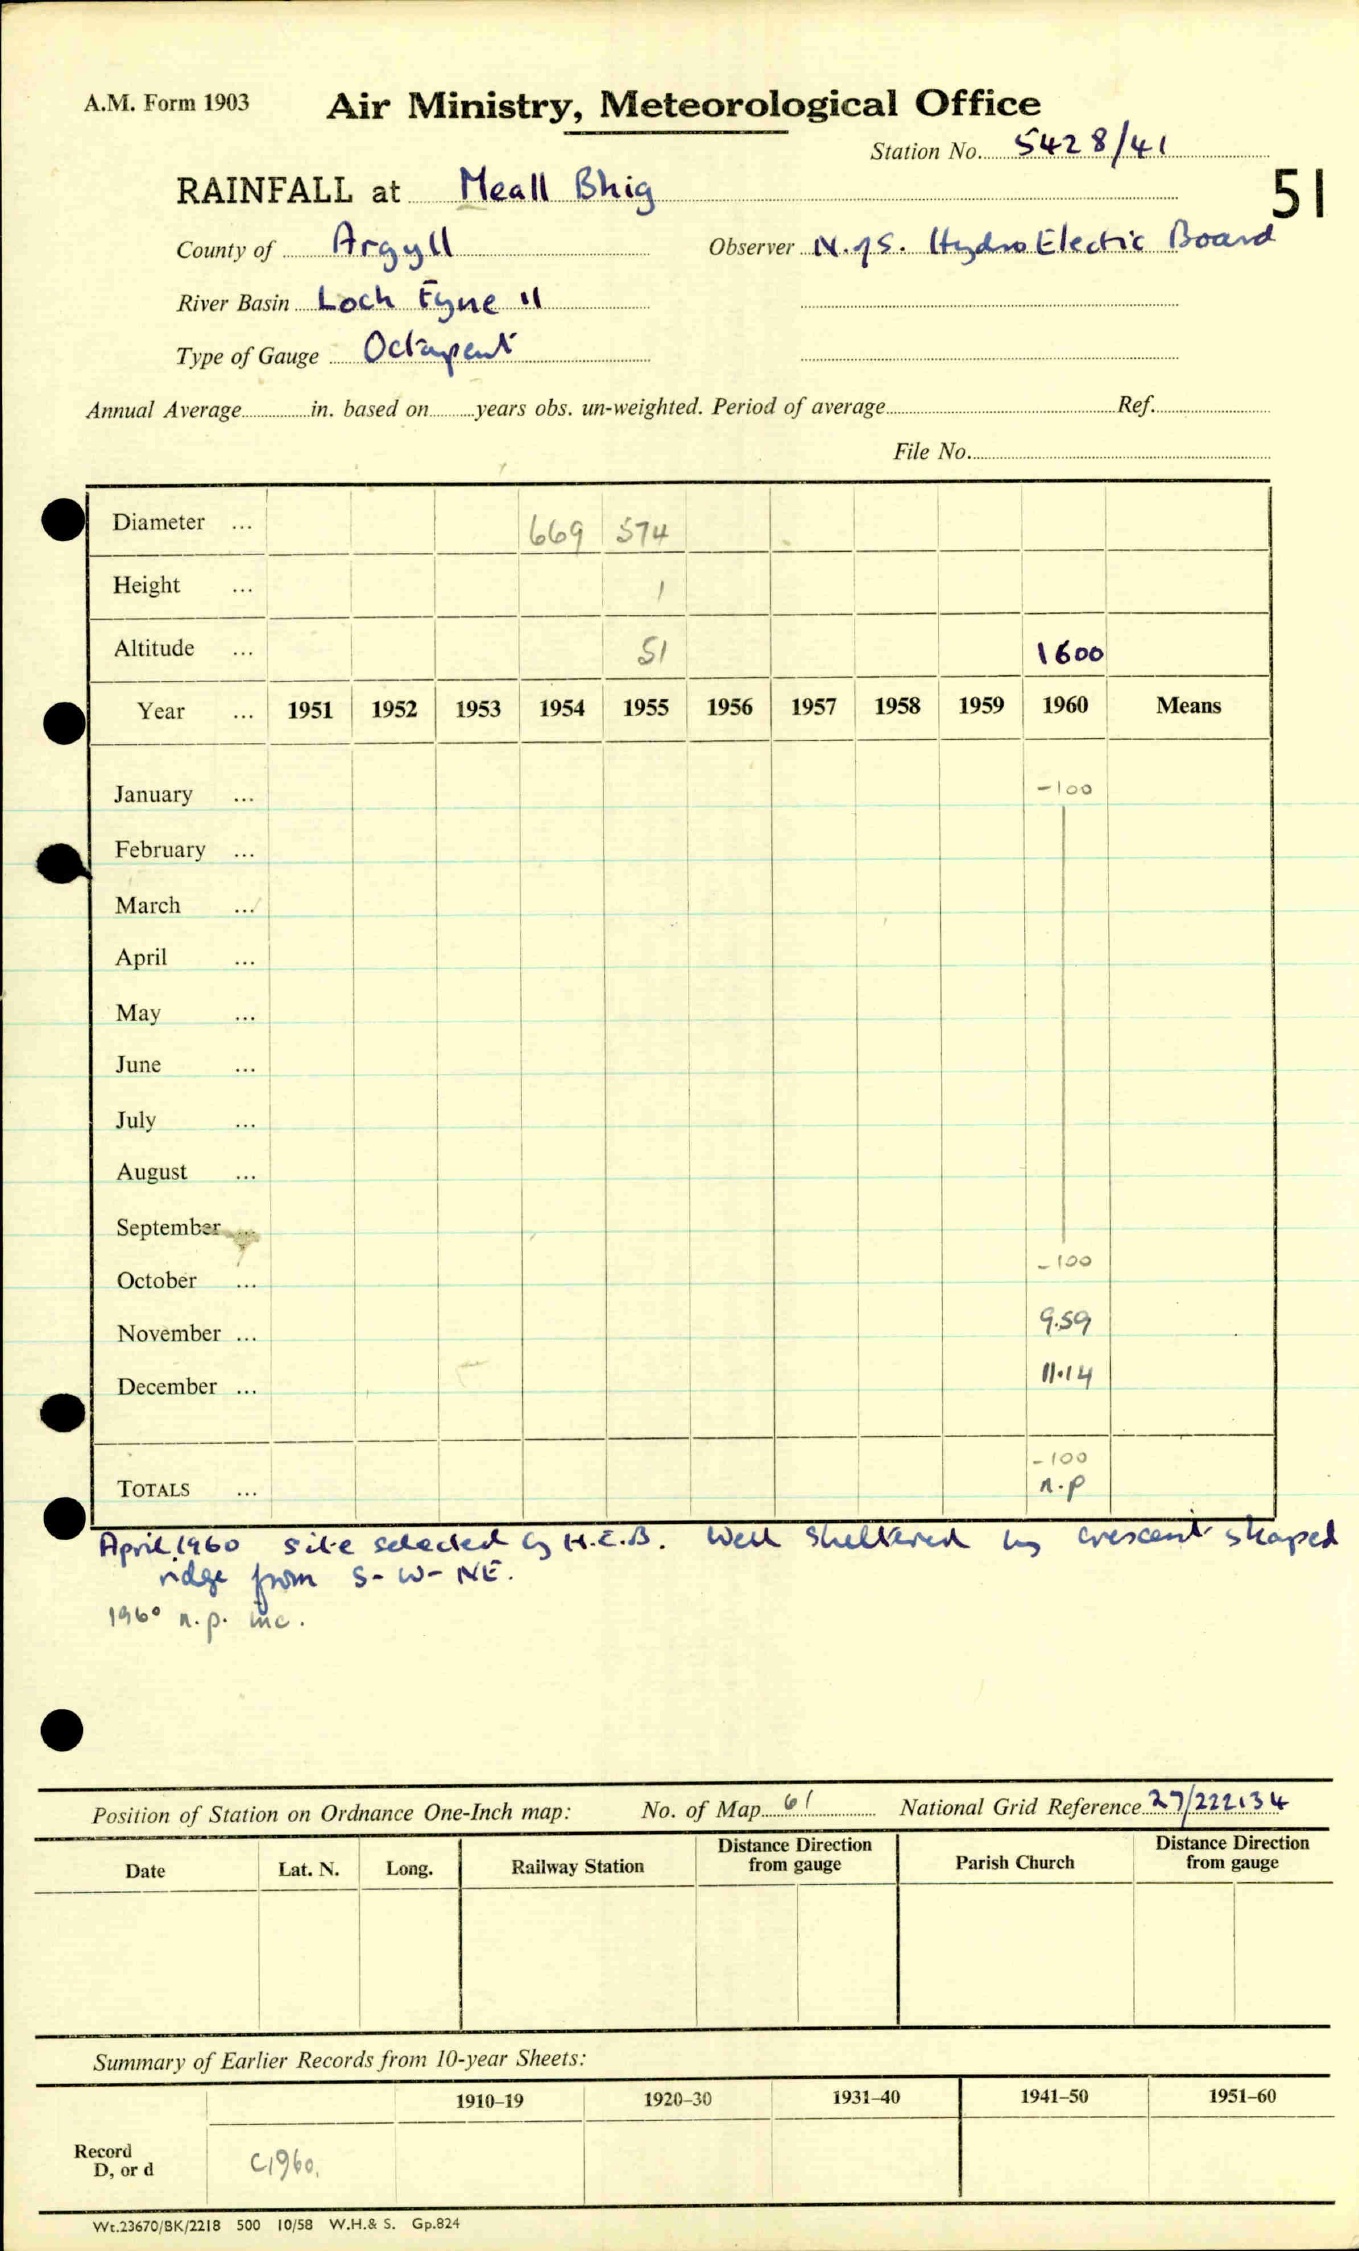 A.M. Form 1903
Air Ministry, Meteorological Office
Station No. 5428/41
51
RAINFALL at Meall Bhig
County of Argyll
Observer N.of S. Hydro Electric Board
River Basin Loch Fyne 11
Type of Gauge Octapent
Annual Average in. based on years obs. un-weighted. Period of average Ref.
File No.
Diameter ... 669 574
Height ... 1
Altitude ... 51 1600
Year ... 1951 1952 1953 1954 1955 1956 1957 1958 1959 1960 Means
January ... -100
February ...
March ...
April ...
May ...
June ...
July ...
August ...
September ...
October ... -100
November ... 9.59
December ... 11.14
-100
TOTALS ... n.p
April 1960 site selected by H.E.B. Well sheltered by crescent shaped
ridge from S-W-NE.
1960 n.p. inc.
Position of Station on Ordnance One-Inch map: No. of Map 61 National Grid Reference 27/222134
Date Lat. N. Long. Railway Station Distance Direction from gauge Parish Church Distance Direction from gauge
Summary of Earlier Records from 10-year Sheets:
1910–19 1920–30 1931–40 1941–50 1951–60
Record
D, or d
C1960.
Wt.23670/BK/2218 500 10/58 W.H.& S. Gp.824